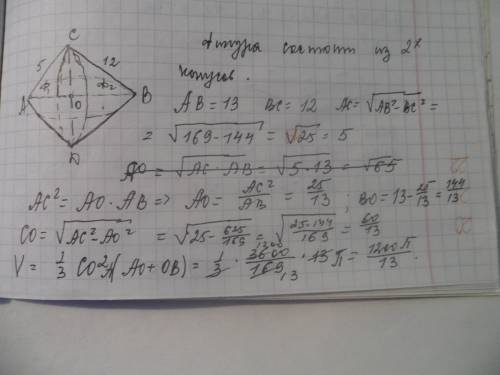 C
5 12
Фигура состоит из 2х
конусов.
Ф1 Ф2
A O B
D
AB = 13 BC = 12 AC = √(AB² - BC²) =
= √(169 - 144) = √25 = 5
AO = √(AC · AB) = √(5 · 13) = √65
AC² = AO · AB => AO = AC²/AB = 25/13 ; BO = 13 - 25/13 = 144/13
CO = √(AC² - AO²) = √(25 - 625/169) = √(25·144/169) = 60/13
V = 1/3 CO²π(AO + OB) = 1/3 · 3600/169 · 13π = 1200π/13.